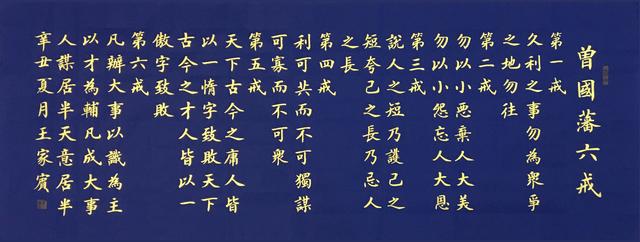 曾國藩六戒
第一戒
久利之事勿為衆爭
之地勿往
第二戒
勿以小惡棄人大美
勿以小怨忘人大恩
第三戒
說人之短乃護己之
短夸己之長乃忌人
之長
第四戒
利可共而不可獨謀
可寡而不可衆
第五戒
天下古今之庸人皆
以一惰字致敗天下
古今之才人皆以一
傲字致敗
第六戒
凡辦大事以識為主
以才為輔凡成大事
人謀居半天意居半
辛丑夏月王家賓